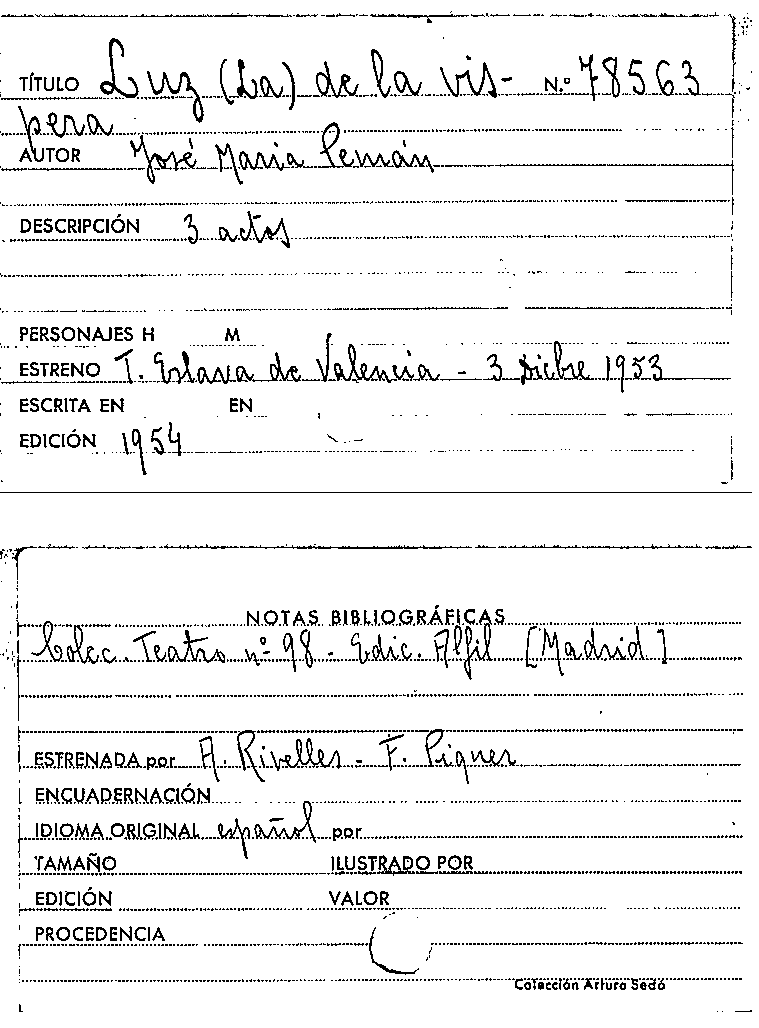 TÍTULO Luz (La) de la vis- N.º 78563
pera
AUTOR José Maria Pemán
DESCRIPCIÓN 3 actos
PERSONAJES H M
ESTRENO T. Eslava de Valencia - 3 Dicbre 1953
ESCRITA EN EN
EDICIÓN 1954
NOTAS BIBLIOGRÁFICAS
Colec. Teatro nº 98 - Edic. Alfil [Madrid]
ESTRENADA por A. Rivelles - F. Piquer
ENCUADERNACIÓN
IDIOMA ORIGINAL español por
TAMAÑO ILUSTRADO POR
EDICIÓN VALOR
PROCEDENCIA
Colección Arturo Sedó